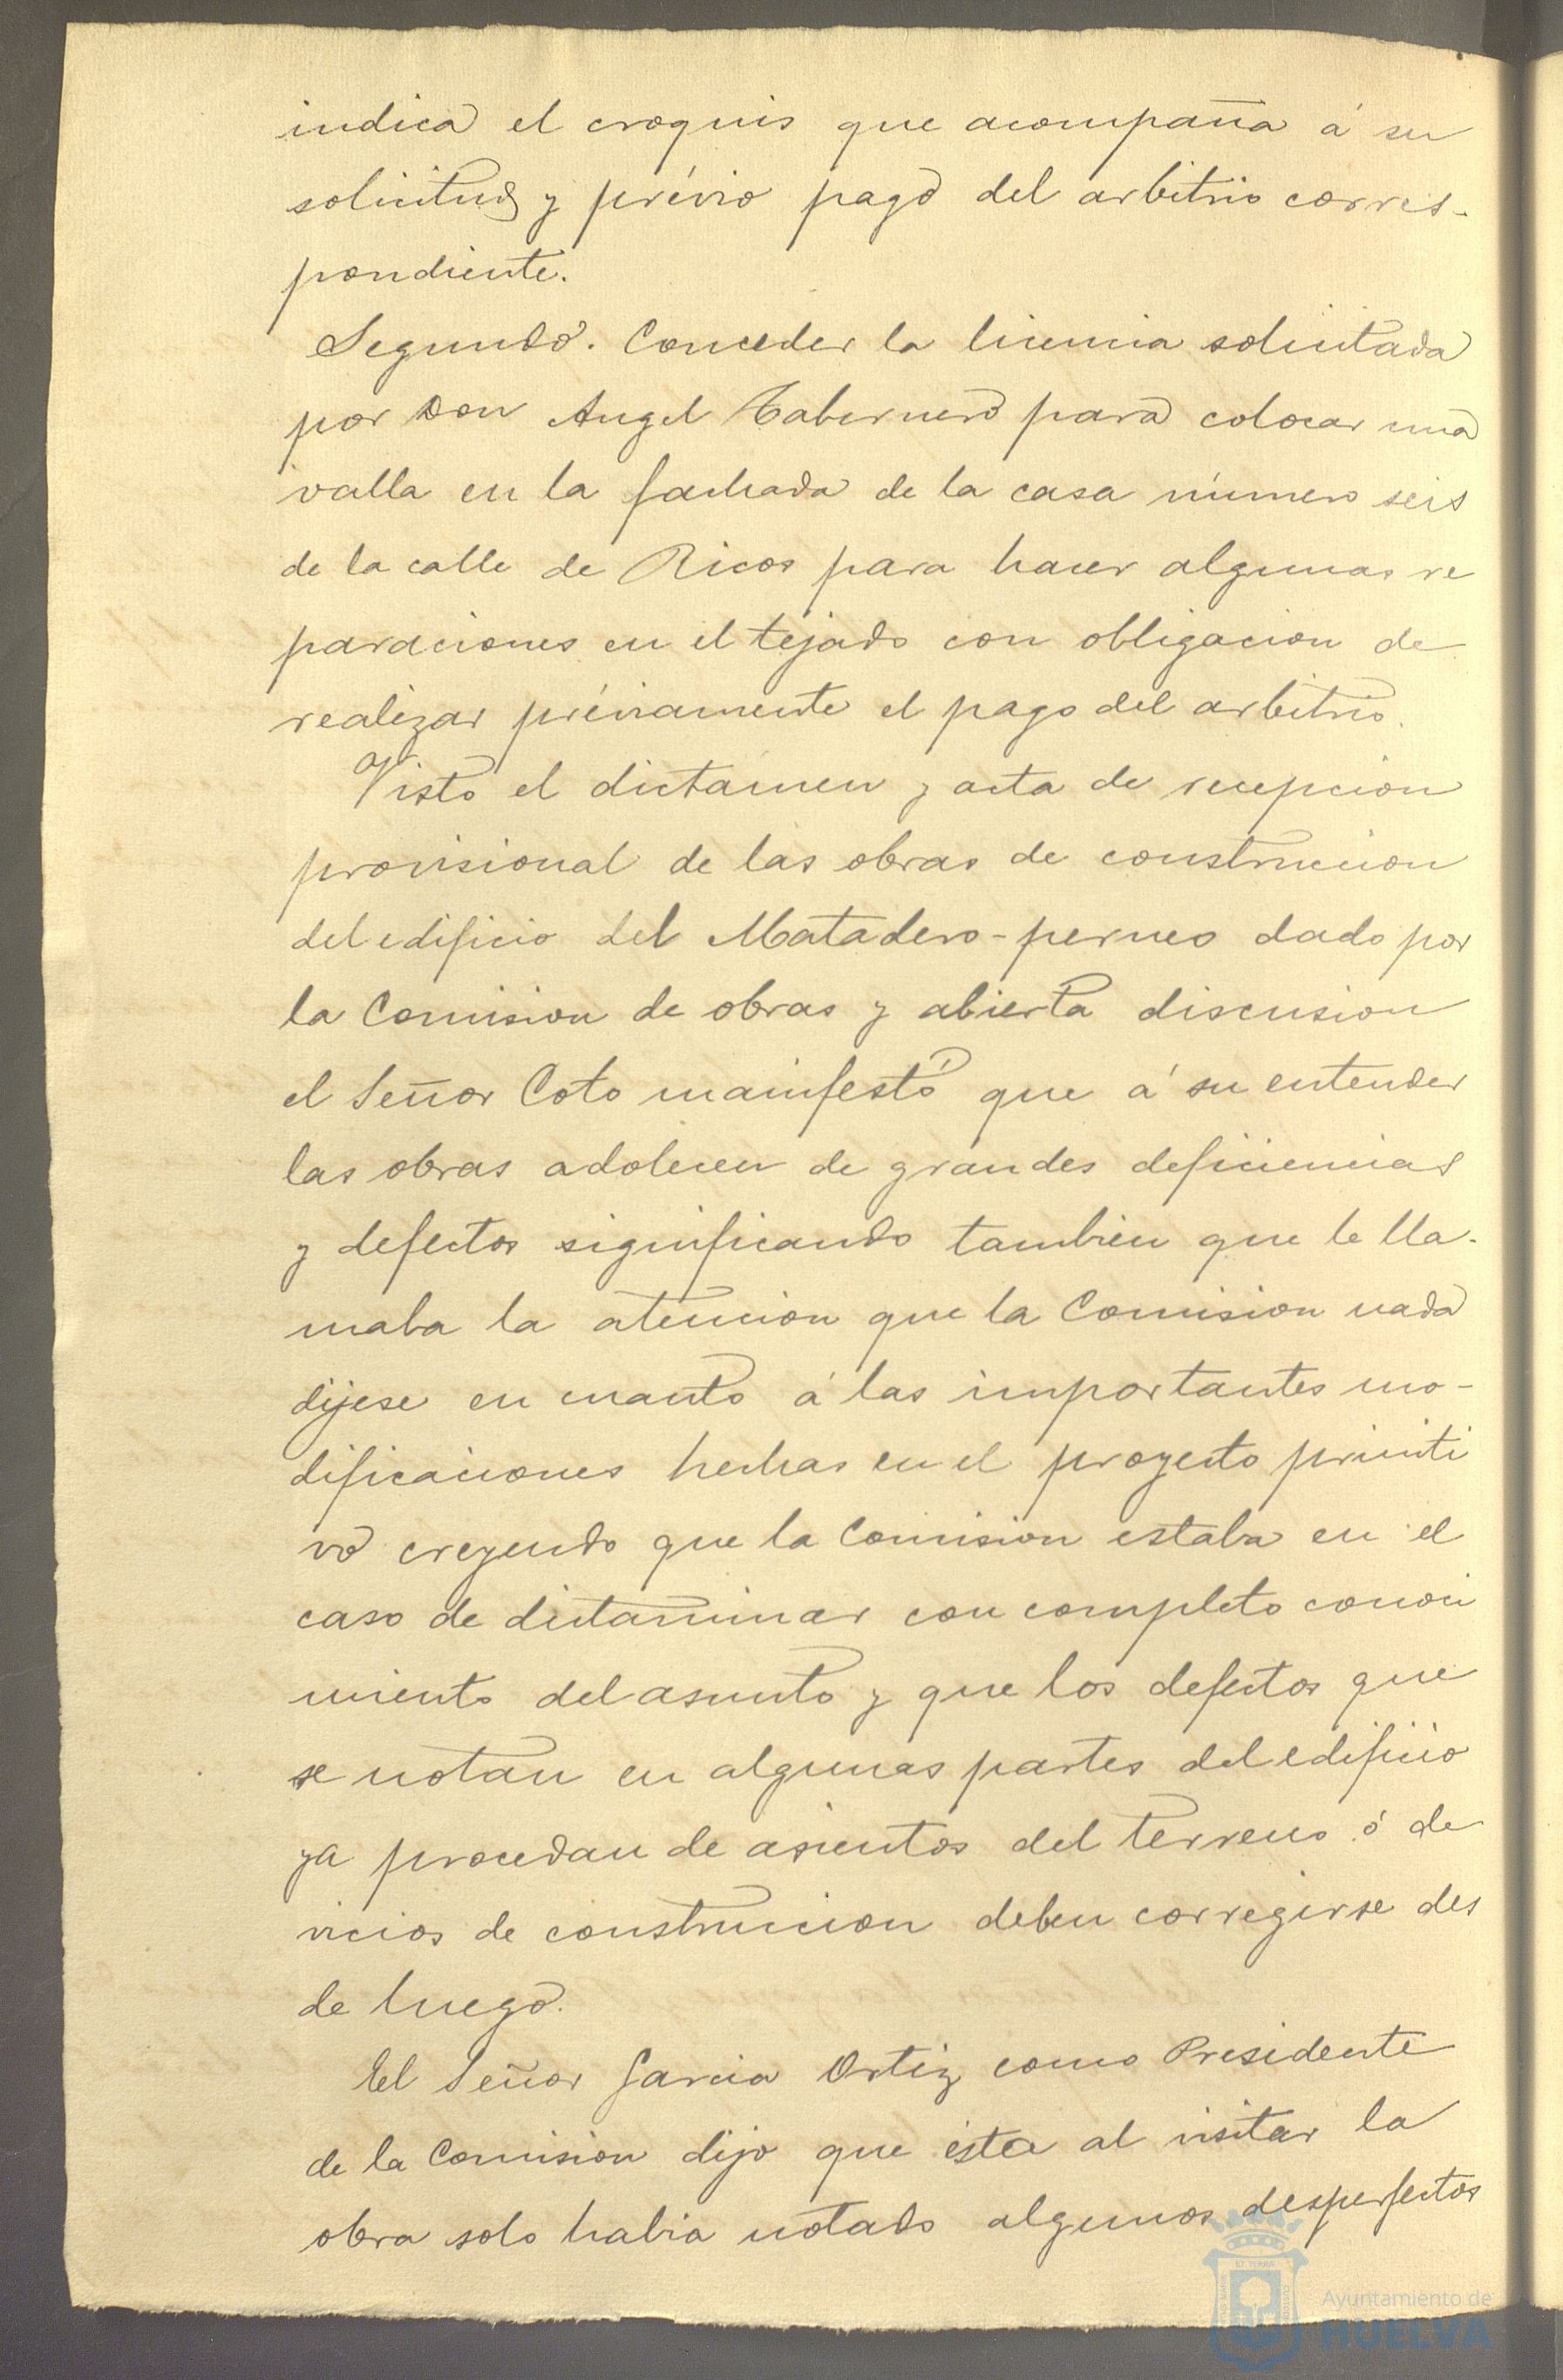 indica el croquis que acompaña á su
solicitud y prévio pago del arbitrio corres-
pondiente.
Segundo. Conceder la licencia solicitada
por Don Angel Tabernero para colocar una
valla en la fachada de la casa número seis
de la calle de Ricos para hacer algunas re
paraciones en el tejado con obligacion de
realizar préviamente el pago del arbitrio.
Visto el dictamen y acta de recepcion
provisional de las obras de construccion
del edificio del Matadero-perneo dado por
la Comision de obras y abierta discusion
el Señor Coto manifestó que á su entender
las obras adolecen de grandes deficiencias
y defectos significando tambien que le lla-
maba la atencion que la Comision nada
dijese en cuanto á las importantes mo-
dificaciones hechas en el proyecto primiti
vo creyendo que la Comision estaba en el
caso de dictaminar con completo conoci
miento del asunto y que los defectos que
se notan en algunas partes del edificio
ya procedan de asientos del terreno ó de
vicios de construccion deben corregirse des
de luego.
El Señor Garcia Ortiz como Presidente
de la Comision dijo que ésta al visitar la
obra solo habia notado algunos desperfectos
Ayuntamiento de
HUELVA